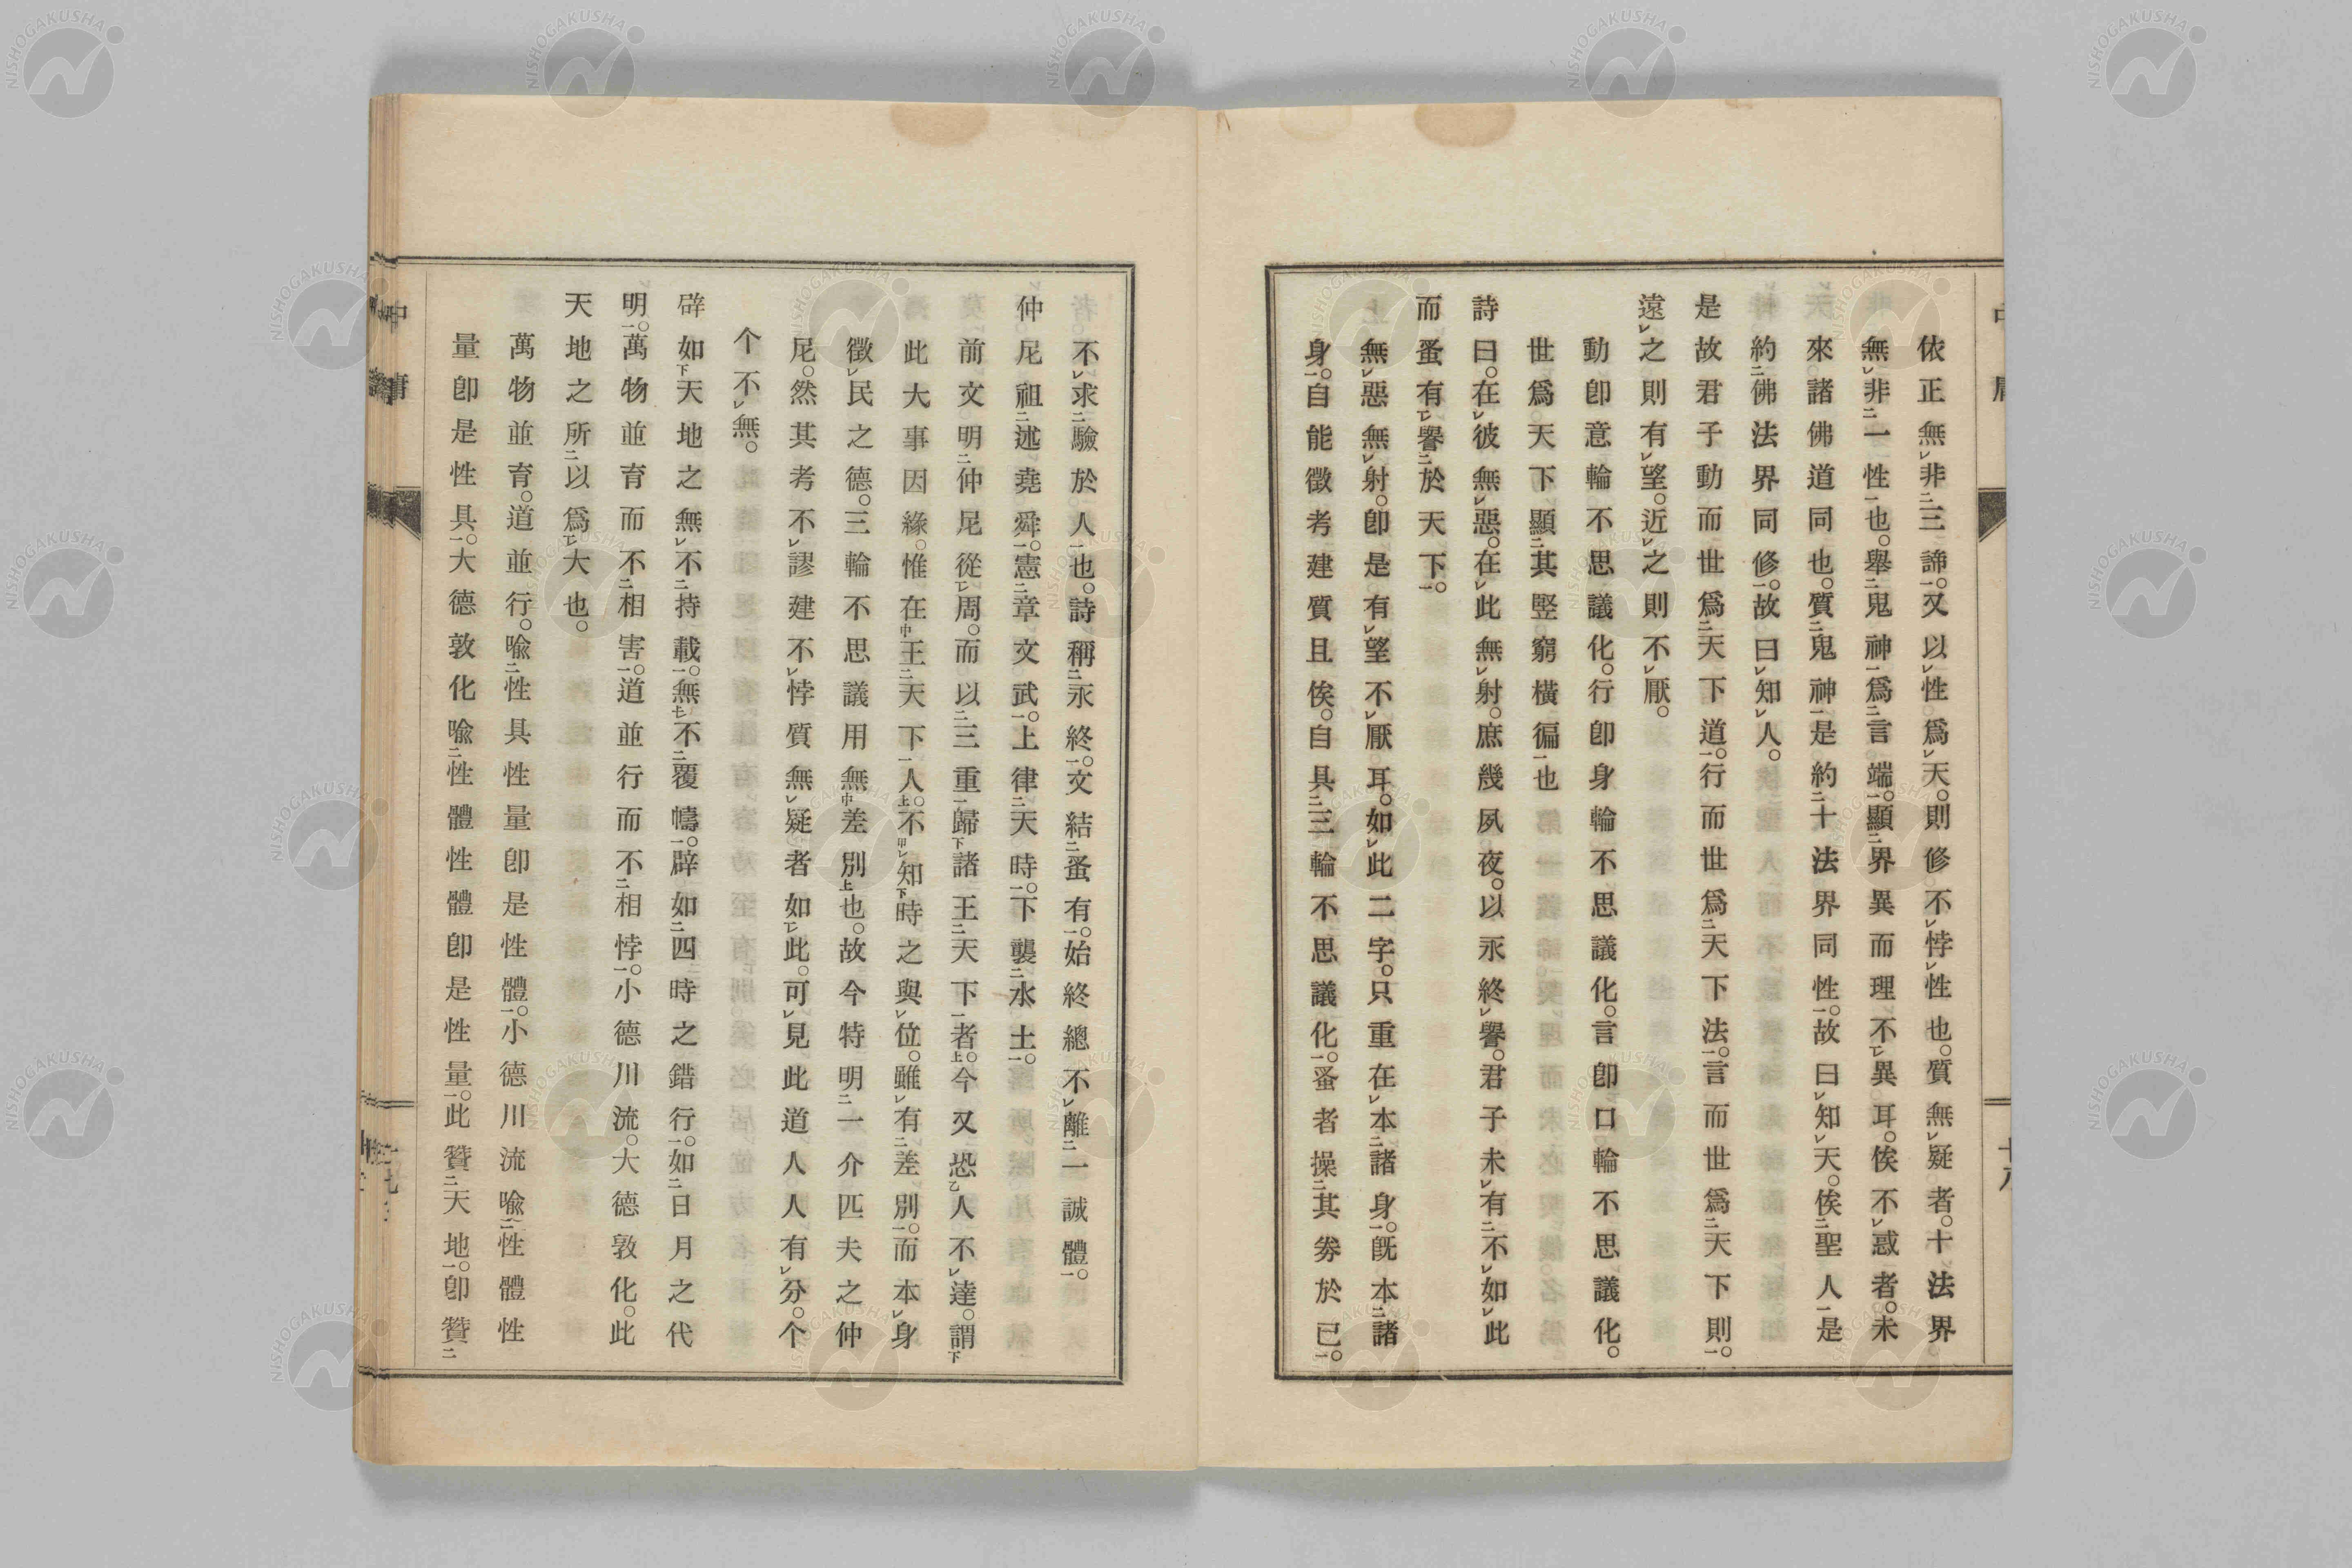 依正無㆑非㆓三諦㆒。又以㆑性爲㆑天。則修不㆑悖㆑性也。質無㆑疑者。十法界
無㆑非㆓一性㆒也。擧㆓鬼神㆒爲㆓言端㆒。顯㆓界異而理不㆑異耳。俟不㆑惑者。未
來諸佛道同也。質㆓鬼神㆒是約㆓十法界同性㆒。故曰知㆑天。俟㆓聖人㆒是
約㆓佛法界同修㆒。故曰㆑知㆑人。
是故君子動而世爲㆓天下道㆒。行而世爲㆓天下法㆒。言而世爲㆓天下則㆒。
遠㆑之則有㆑望。近㆑之則不㆑厭。
動卽意輪不思議化。行卽身輪不思議化。言卽口輪不思議化。
世爲天下顯㆓其竪窮橫徧㆒也
詩曰。在㆑彼無㆑惡。在㆑此無㆑射。庶幾夙夜。以永終㆑譽。君子未㆑有㆘不㆑如㆑此
而蚤有㆗譽㆓於天下㆒。
無㆑惡無㆑射。卽是有㆑望不㆑厭耳。如㆑此二字。只重在㆑本㆓諸身㆒。旣本㆓諸
身㆒。自能徵考建質且俟。自具㆓三輪不思議化㆒。蚤者操㆓其劵於已㆒。
不㆑求㆓驗於人㆒也。詩稱㆓永終㆒。文結㆓蚤有㆒。始終總不㆑離㆓一誠體㆒。
仲尼祖㆓述堯舜㆒。憲㆓章文武㆒。上律㆓天時㆒。下襲㆓水土㆒。
前文明㆓仲尼從㆑周。而以㆓三重㆒歸㆘諸王㆓天下㆒者㆖。今又恐㆚人不㆑達。謂㆘
此大事因緣。惟在㆗王㆓天下㆒人㆖。不㆙㆑知㆘時之與㆑位。雖㆑有㆓差別㆒。而本㆑身
徵㆑民之德。三輪不思議用無㆗差別㆖也。故今特明㆓一介匹夫之仲
尼。然其考不㆑謬建不㆑悖質無㆑疑者如㆑此。可㆑見此道人人有㆑分。个
个不㆑無。
辟如㆘天地之無㆑不㆓持載㆒。無㆗不㆓覆幬㆒。辟如㆓四時之錯行㆒。如㆓日月之代
明㆒。萬物並育而不㆓相害㆒。道並行而不㆓相悖㆒。小德川流。大德敦化。此
天地之所㆓以爲㆑大也。
萬物並育。道並行。喩㆓性具性量卽是性體㆒。小德川流喩㆓性體性
量卽是性具㆒。大德敦化喩㆓性體性體卽是性量㆒。此贊㆓天地㆒。卽贊㆓